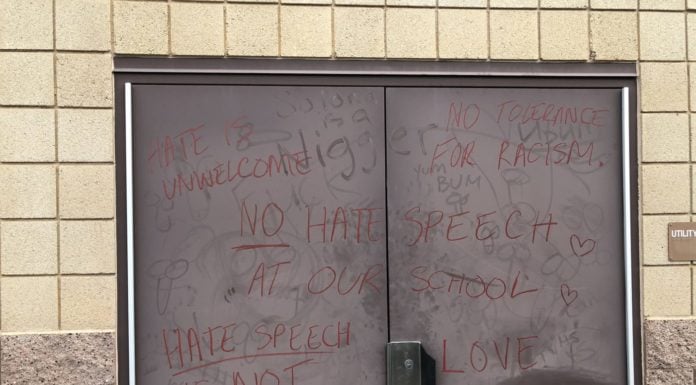 HATE IS
UNWELCOME
NO TOLERANCE
FOR RACISM.
Nigger
YUM
BUM
NO HATE SPEECH
AT OUR SCHOOL
HATE SPEECH
NOT
LOVE
UTILITY